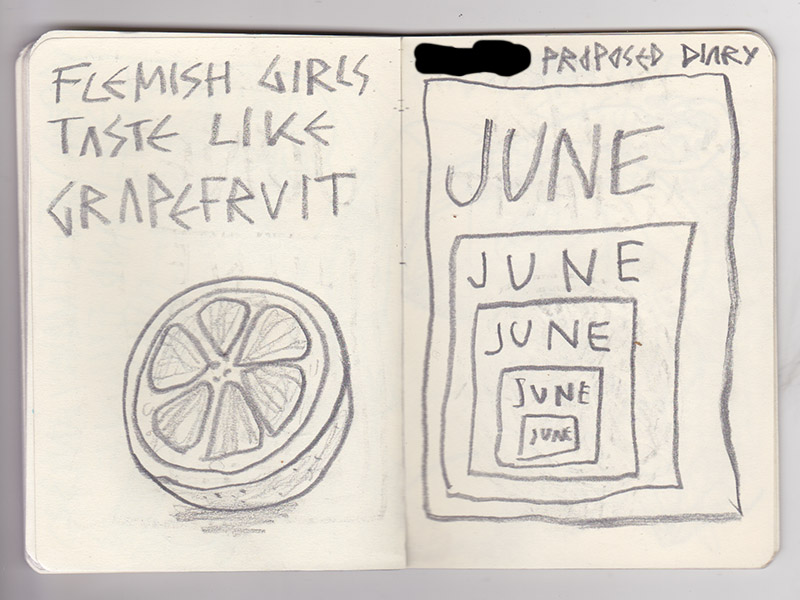 FLEMISH GIRLS
TASTE LIKE
GRAPEFRUIT
PROPOSED DIARY
JUNE
JUNE
JUNE
JUNE
JUNE